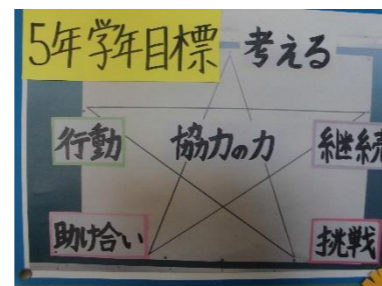 5年学年目標
考える
行動
協力の力
継続
助け合い
挑戦